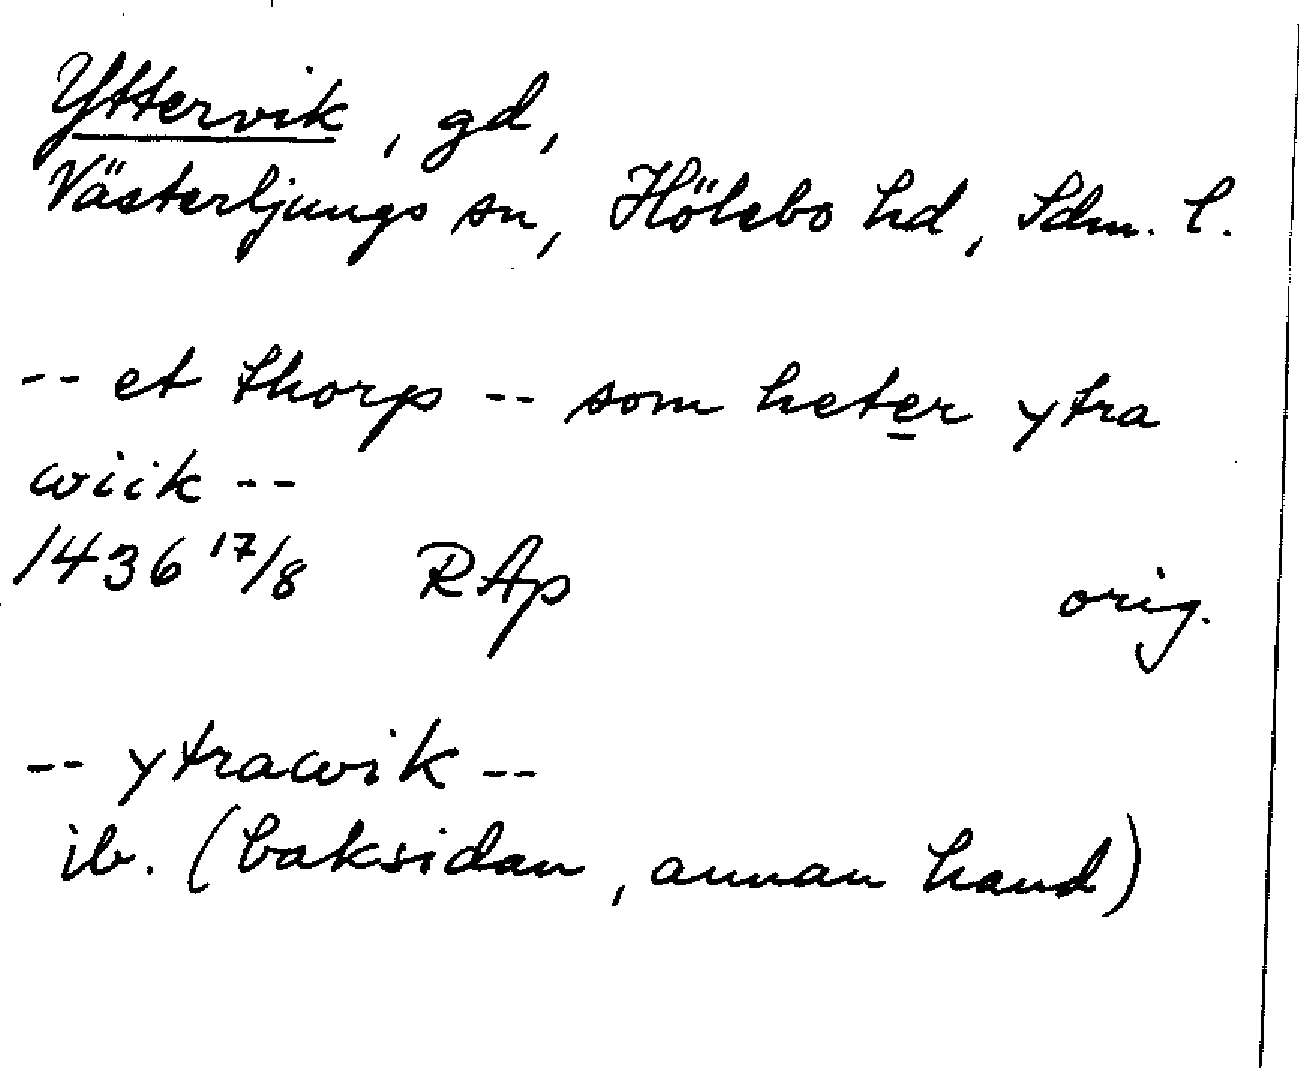 Yttervik, gd,
Västerljungs sn, Hölebo hd, Sdm. l.
-- et thorp -- som heter ytra
wiik --
1436 17/8 RAp orig.
-- ytrawik --
ib. (baksidan, annan hand)